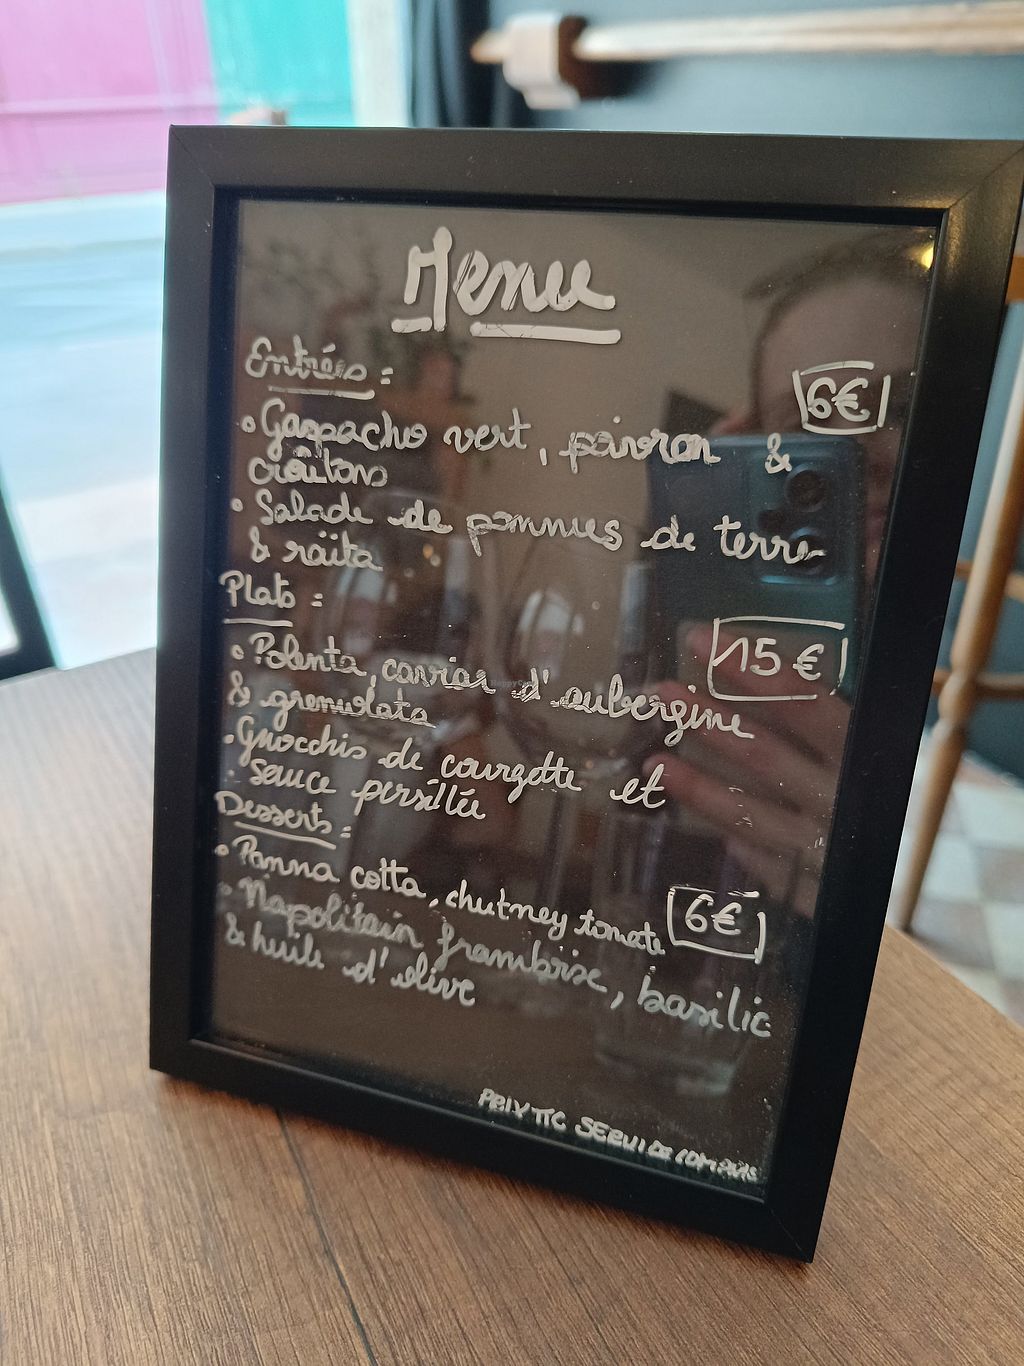 Menu
Entrées :
6€
• Gaspacho vert, poivron &
croûtons
• Salade de pommes de terre
& raïta
Plats :
15€
• Polenta, caviar d'aubergine
& gremolata
• Gnocchis de courgette et
sauce persillée
Desserts :
• Panna cotta, chutney tomate
6€
• Napolitain framboise, basilic
& huile d'olive
PRIX TTC SERVICE COMPRIS